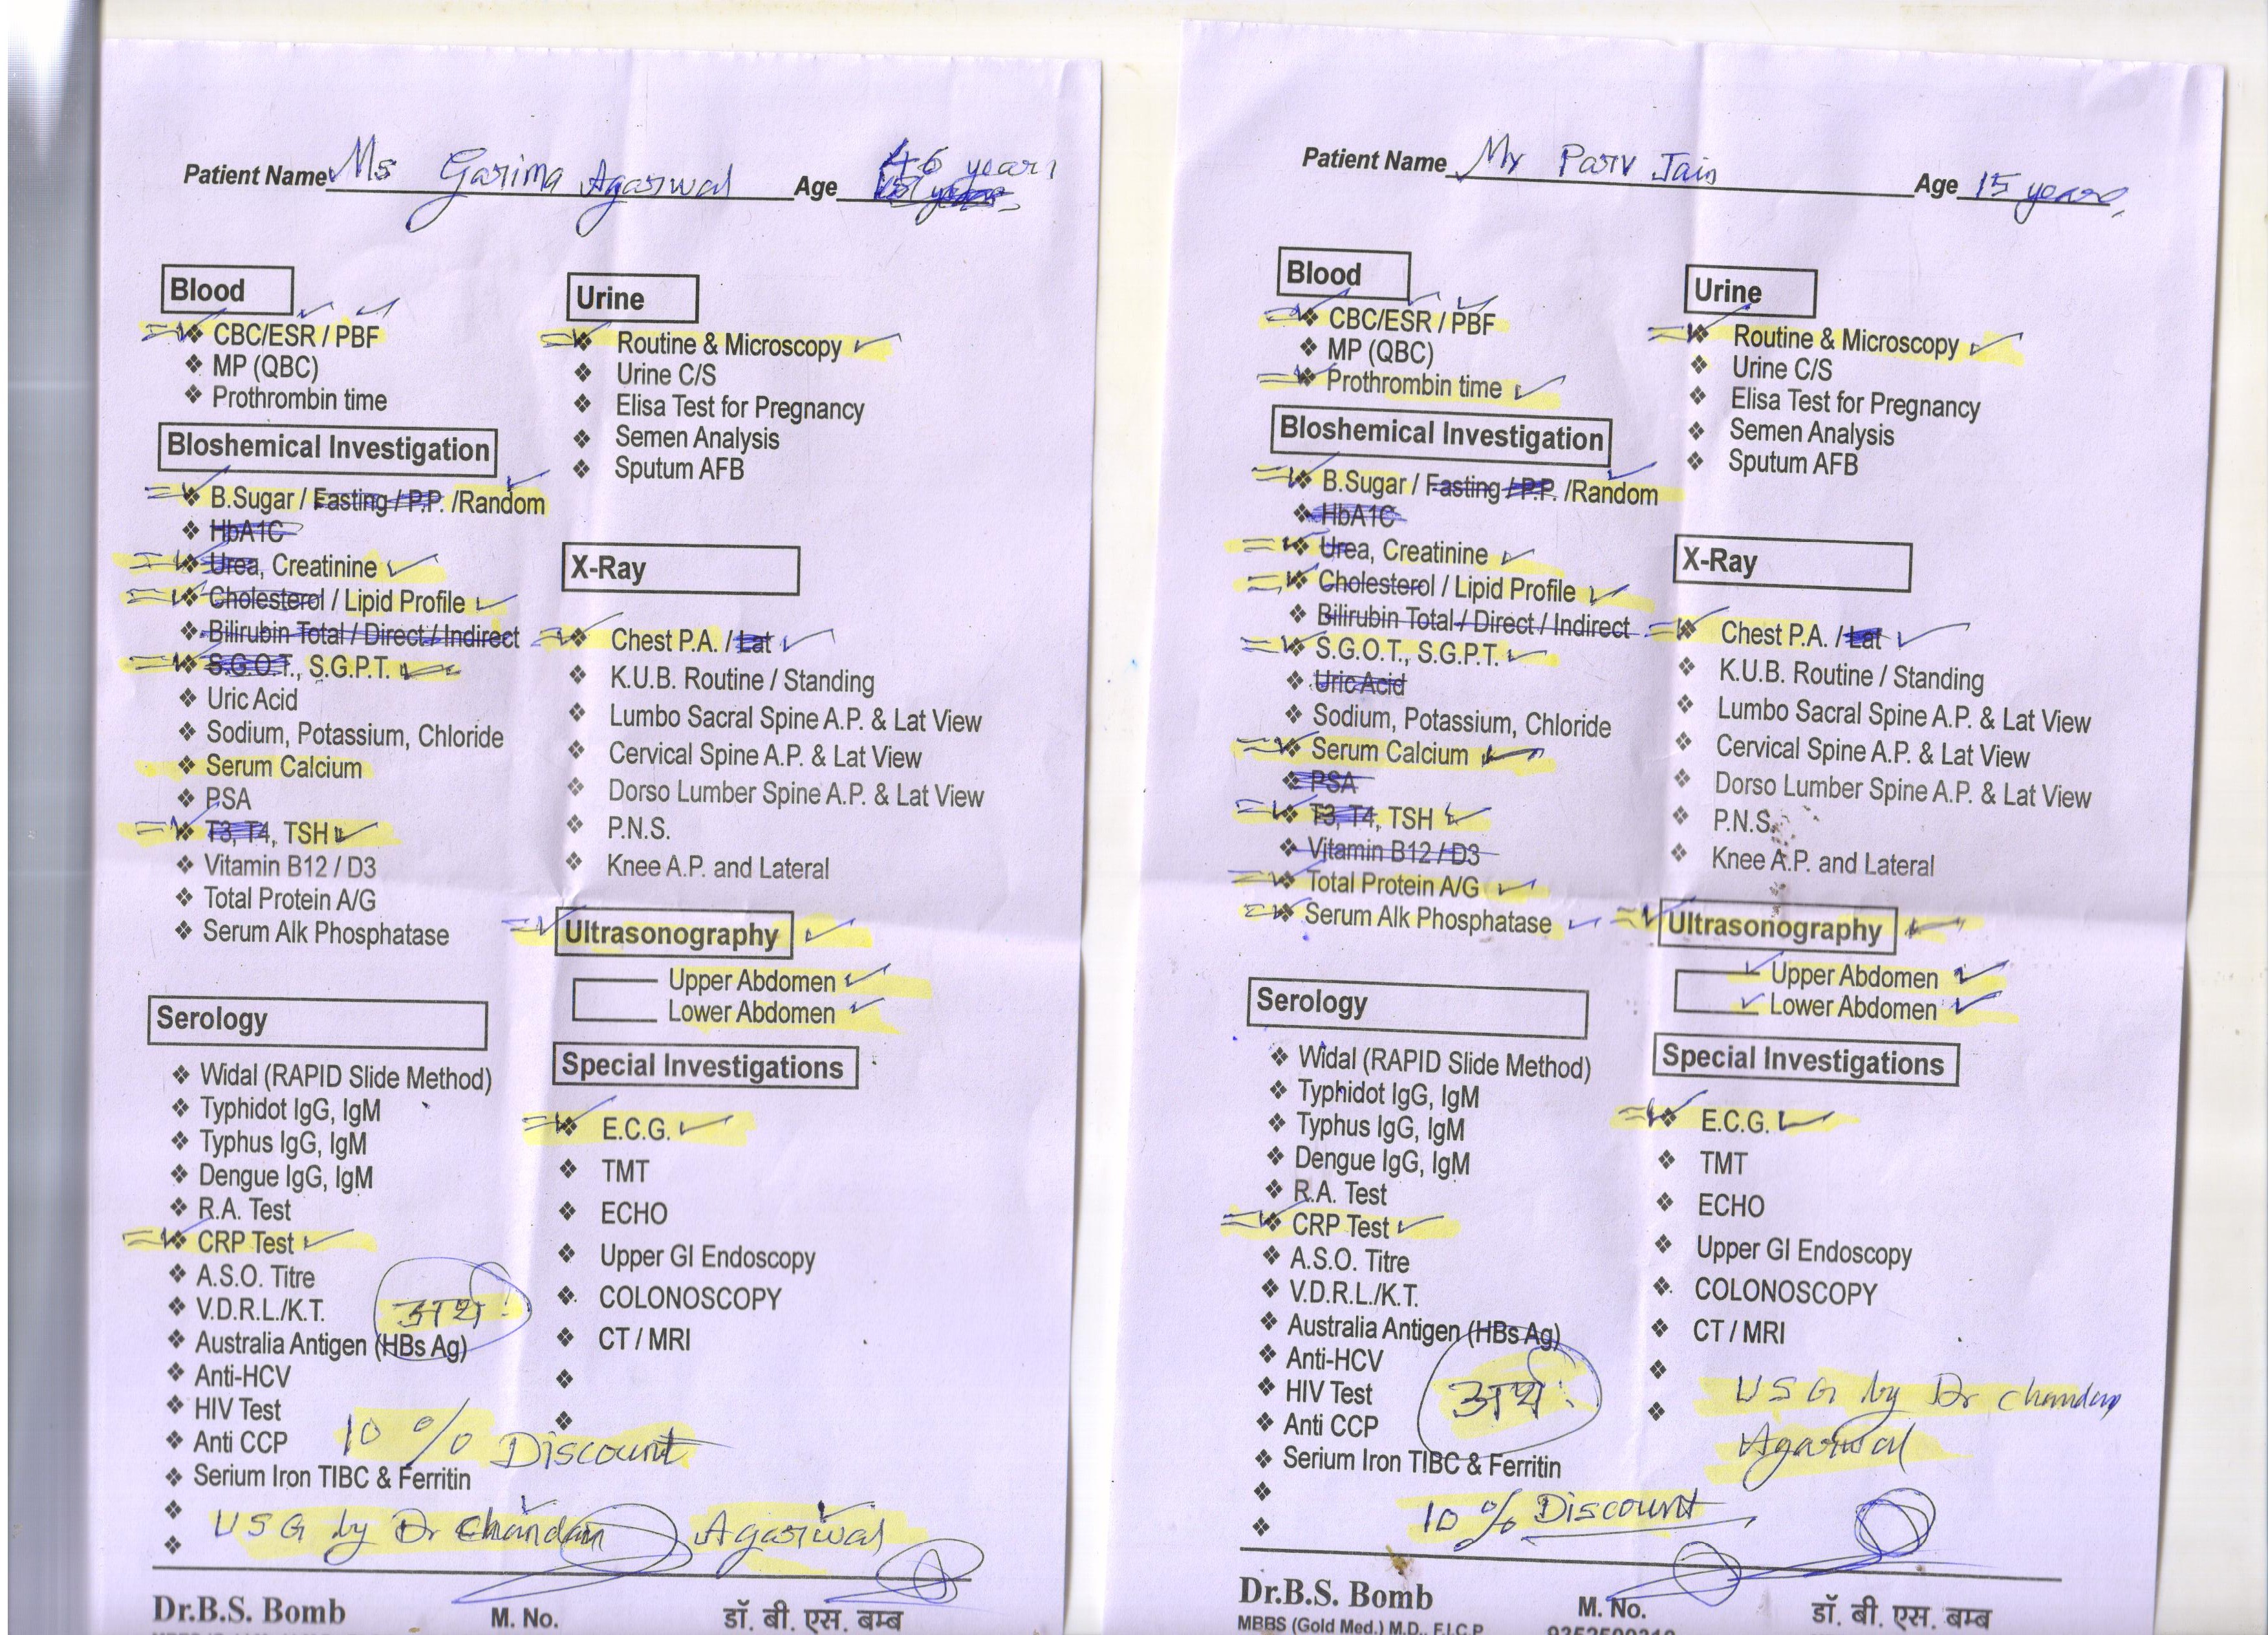 Patient Name Ms Garima Agarwal Age 46 years
Blood
CBC/ESR / PBF
MP (QBC)
Prothrombin time
Bloshemical Investigation
B.Sugar / Fasting / P.P. /Random
HbA1C
Urea, Creatinine
Cholesterol / Lipid Profile
Bilirubin Total / Direct / Indirect
S.G.O.T., S.G.P.T.
Uric Acid
Sodium, Potassium, Chloride
Serum Calcium
PSA
T3, T4, TSH
Vitamin B12 / D3
Total Protein A/G
Serum Alk Phosphatase
Serology
Widal (RAPID Slide Method)
Typhidot IgG, IgM
Typhus IgG, IgM
Dengue IgG, IgM
R.A. Test
CRP Test
A.S.O. Titre
V.D.R.L./K.T.
Australia Antigen (HBs Ag)
Anti-HCV
HIV Test
Anti CCP
Serium Iron TIBC & Ferritin
Urine
Routine & Microscopy
Urine C/S
Elisa Test for Pregnancy
Semen Analysis
Sputum AFB
X-Ray
Chest P.A. / Lat
K.U.B. Routine / Standing
Lumbo Sacral Spine A.P. & Lat View
Cervical Spine A.P. & Lat View
Dorso Lumber Spine A.P. & Lat View
P.N.S.
Knee A.P. and Lateral
Ultrasonography
Upper Abdomen
Lower Abdomen
Special Investigations
E.C.G.
TMT
ECHO
Upper GI Endoscopy
COLONOSCOPY
CT / MRI
अर्थ:
10 % Discount
USG by Dr Chandan Agarwal
Dr.B.S. Bomb M. No. डॉ. बी. एस. बम्ब
Patient Name Mr Parv Jain Age 15 years
Blood
CBC/ESR / PBF
MP (QBC)
Prothrombin time
Bloshemical Investigation
B.Sugar / Fasting / P.P. /Random
HbA1C
Urea, Creatinine
Cholesterol / Lipid Profile
Bilirubin Total / Direct / Indirect
S.G.O.T., S.G.P.T.
Uric Acid
Sodium, Potassium, Chloride
Serum Calcium
PSA
T3, T4, TSH
Vitamin B12 / D3
Total Protein A/G
Serum Alk Phosphatase
Serology
Widal (RAPID Slide Method)
Typhidot IgG, IgM
Typhus IgG, IgM
Dengue IgG, IgM
R.A. Test
CRP Test
A.S.O. Titre
V.D.R.L./K.T.
Australia Antigen (HBs Ag)
Anti-HCV
HIV Test
Anti CCP
Serium Iron TIBC & Ferritin
Urine
Routine & Microscopy
Urine C/S
Elisa Test for Pregnancy
Semen Analysis
Sputum AFB
X-Ray
Chest P.A. / Lat
K.U.B. Routine / Standing
Lumbo Sacral Spine A.P. & Lat View
Cervical Spine A.P. & Lat View
Dorso Lumber Spine A.P. & Lat View
P.N.S.
Knee A.P. and Lateral
Ultrasonography
Upper Abdomen
Lower Abdomen
Special Investigations
E.C.G.
TMT
ECHO
Upper GI Endoscopy
COLONOSCOPY
CT / MRI
अर्थ:
USG by Dr Chandan
Agarwal
10 % Discount
Dr.B.S. Bomb M. No. डॉ. बी. एस. बम्ब
MBBS (Gold Med.) M.D., F.I.C.P.